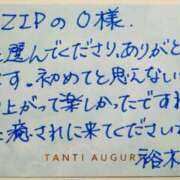 ZIPのO様.
選んでくださり、ありがと
です。初めてと思えない
上がって楽しかったですね
癒されに来てくださいた
TANTI AUGUR
裕木